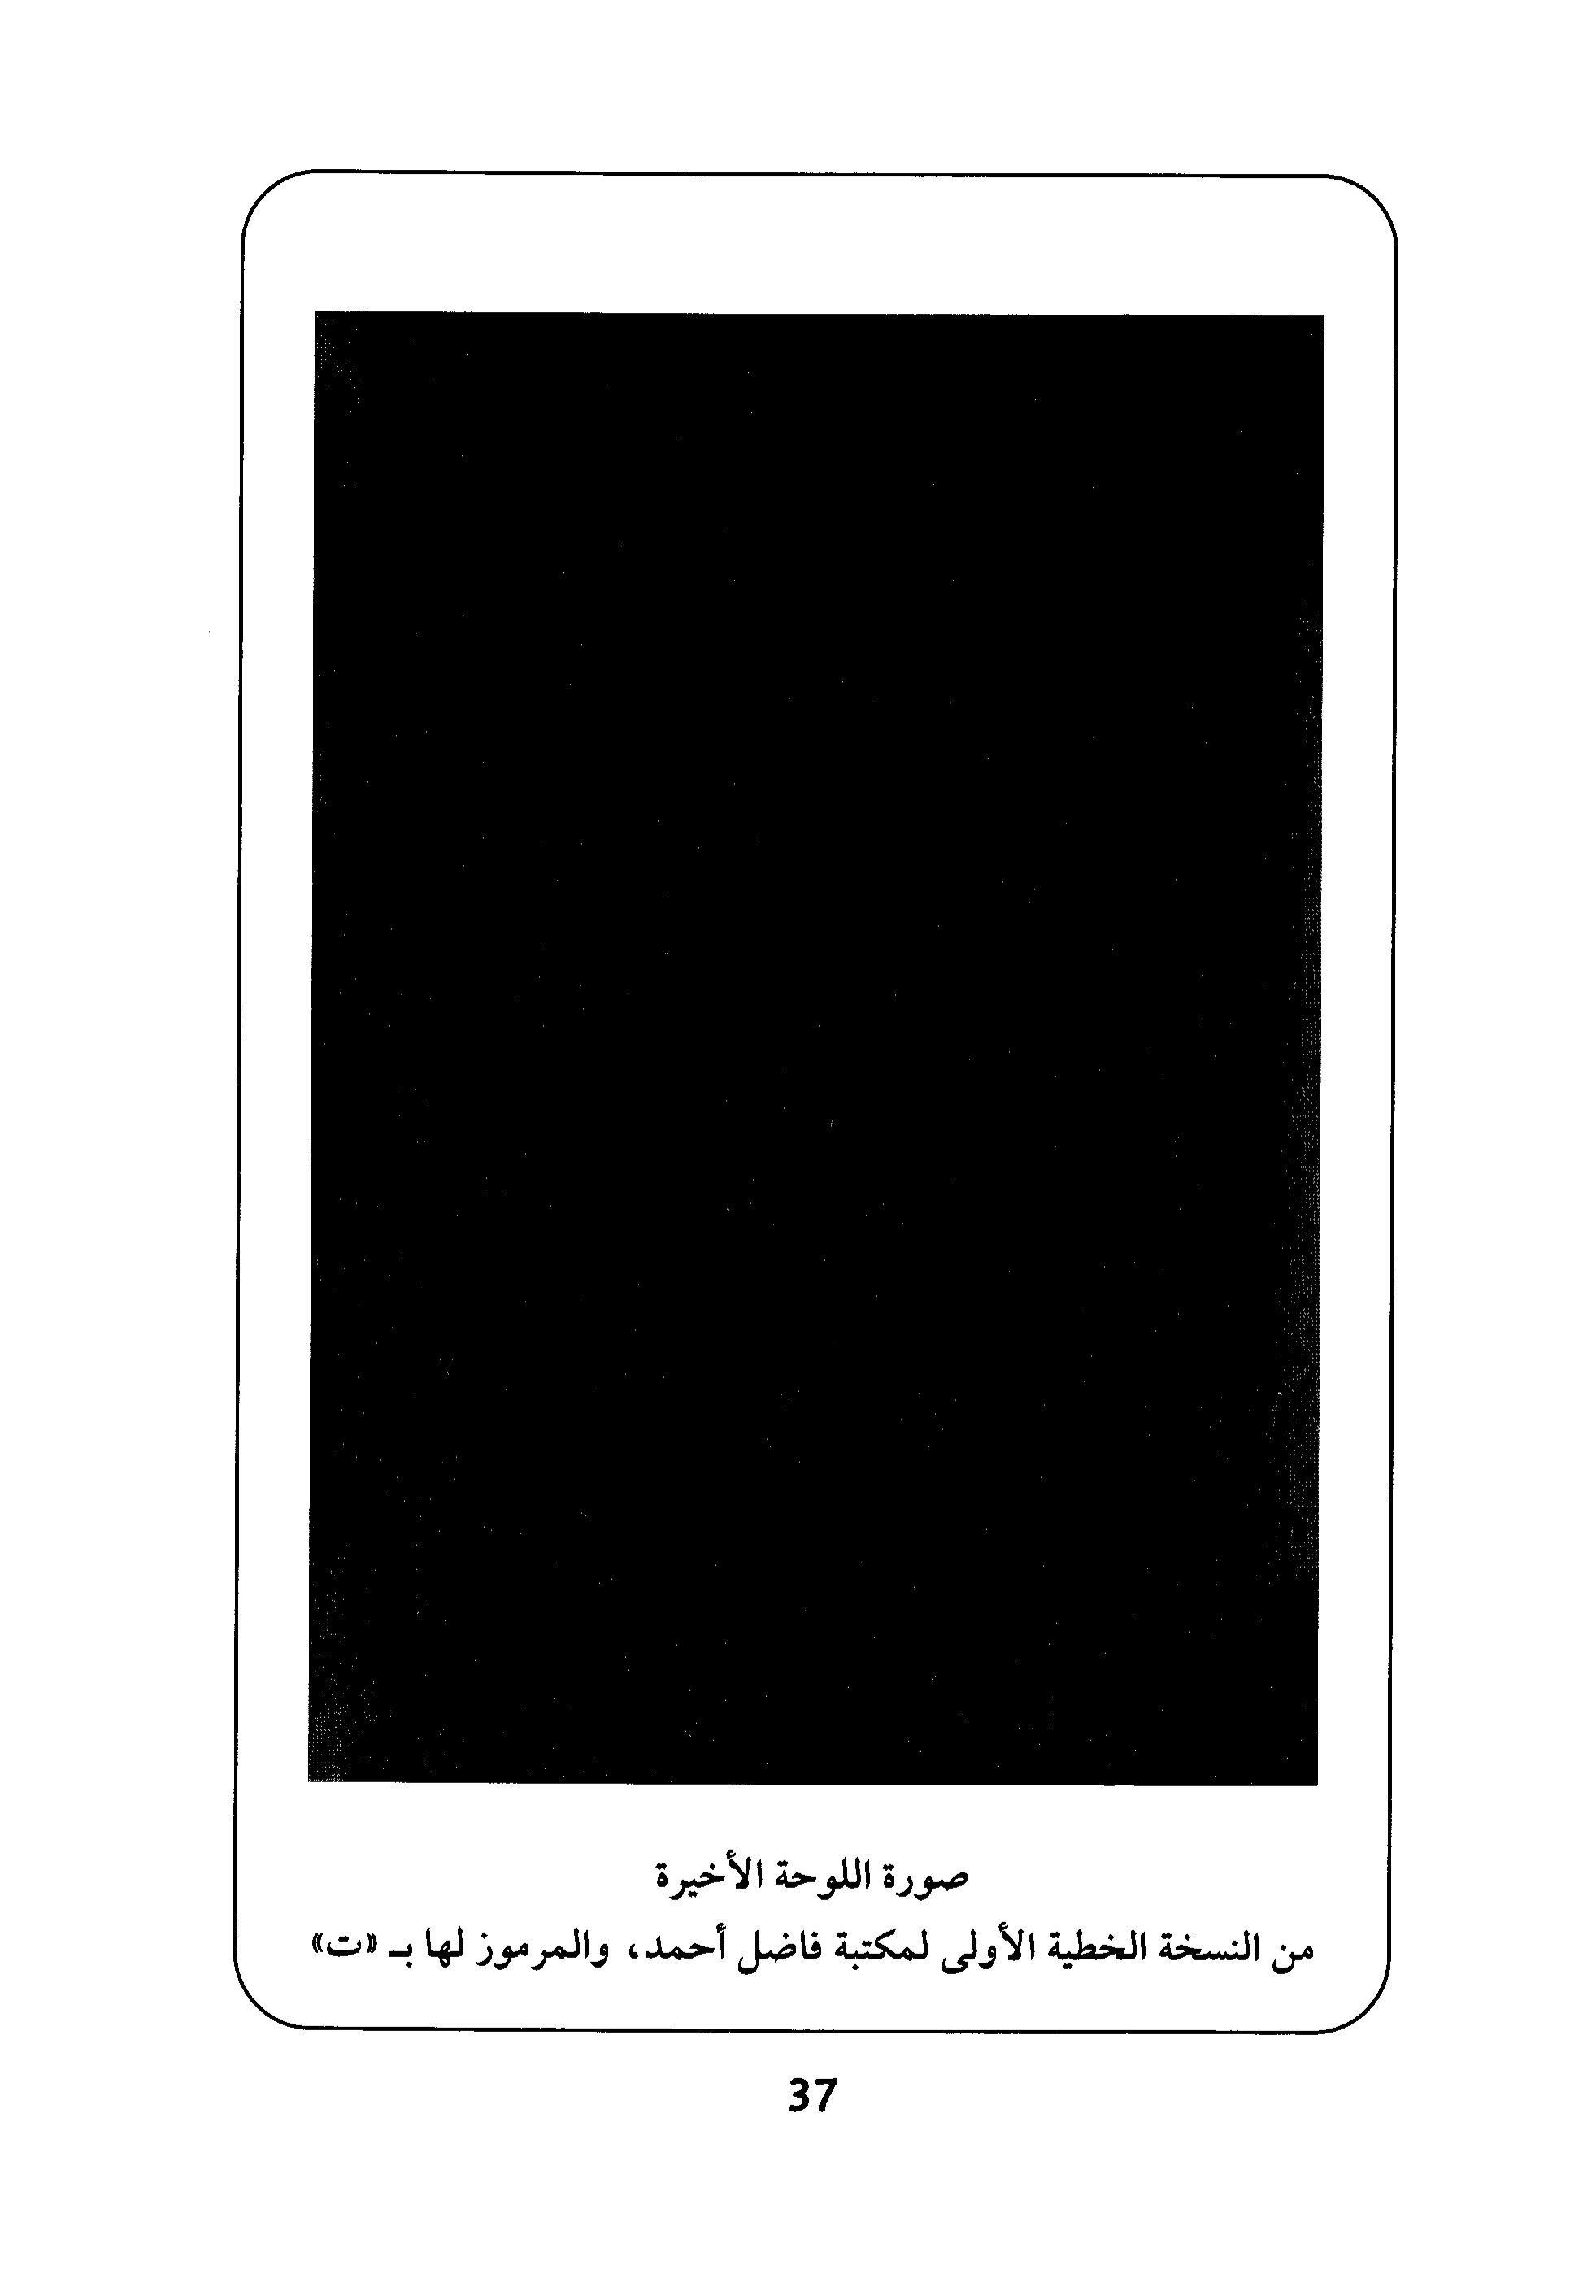 صورة اللوحة الأخيرة
من النسخة الخطية الأولى لمكتبة فاضل أحمد، والمرموز لها بـ «ت»
37